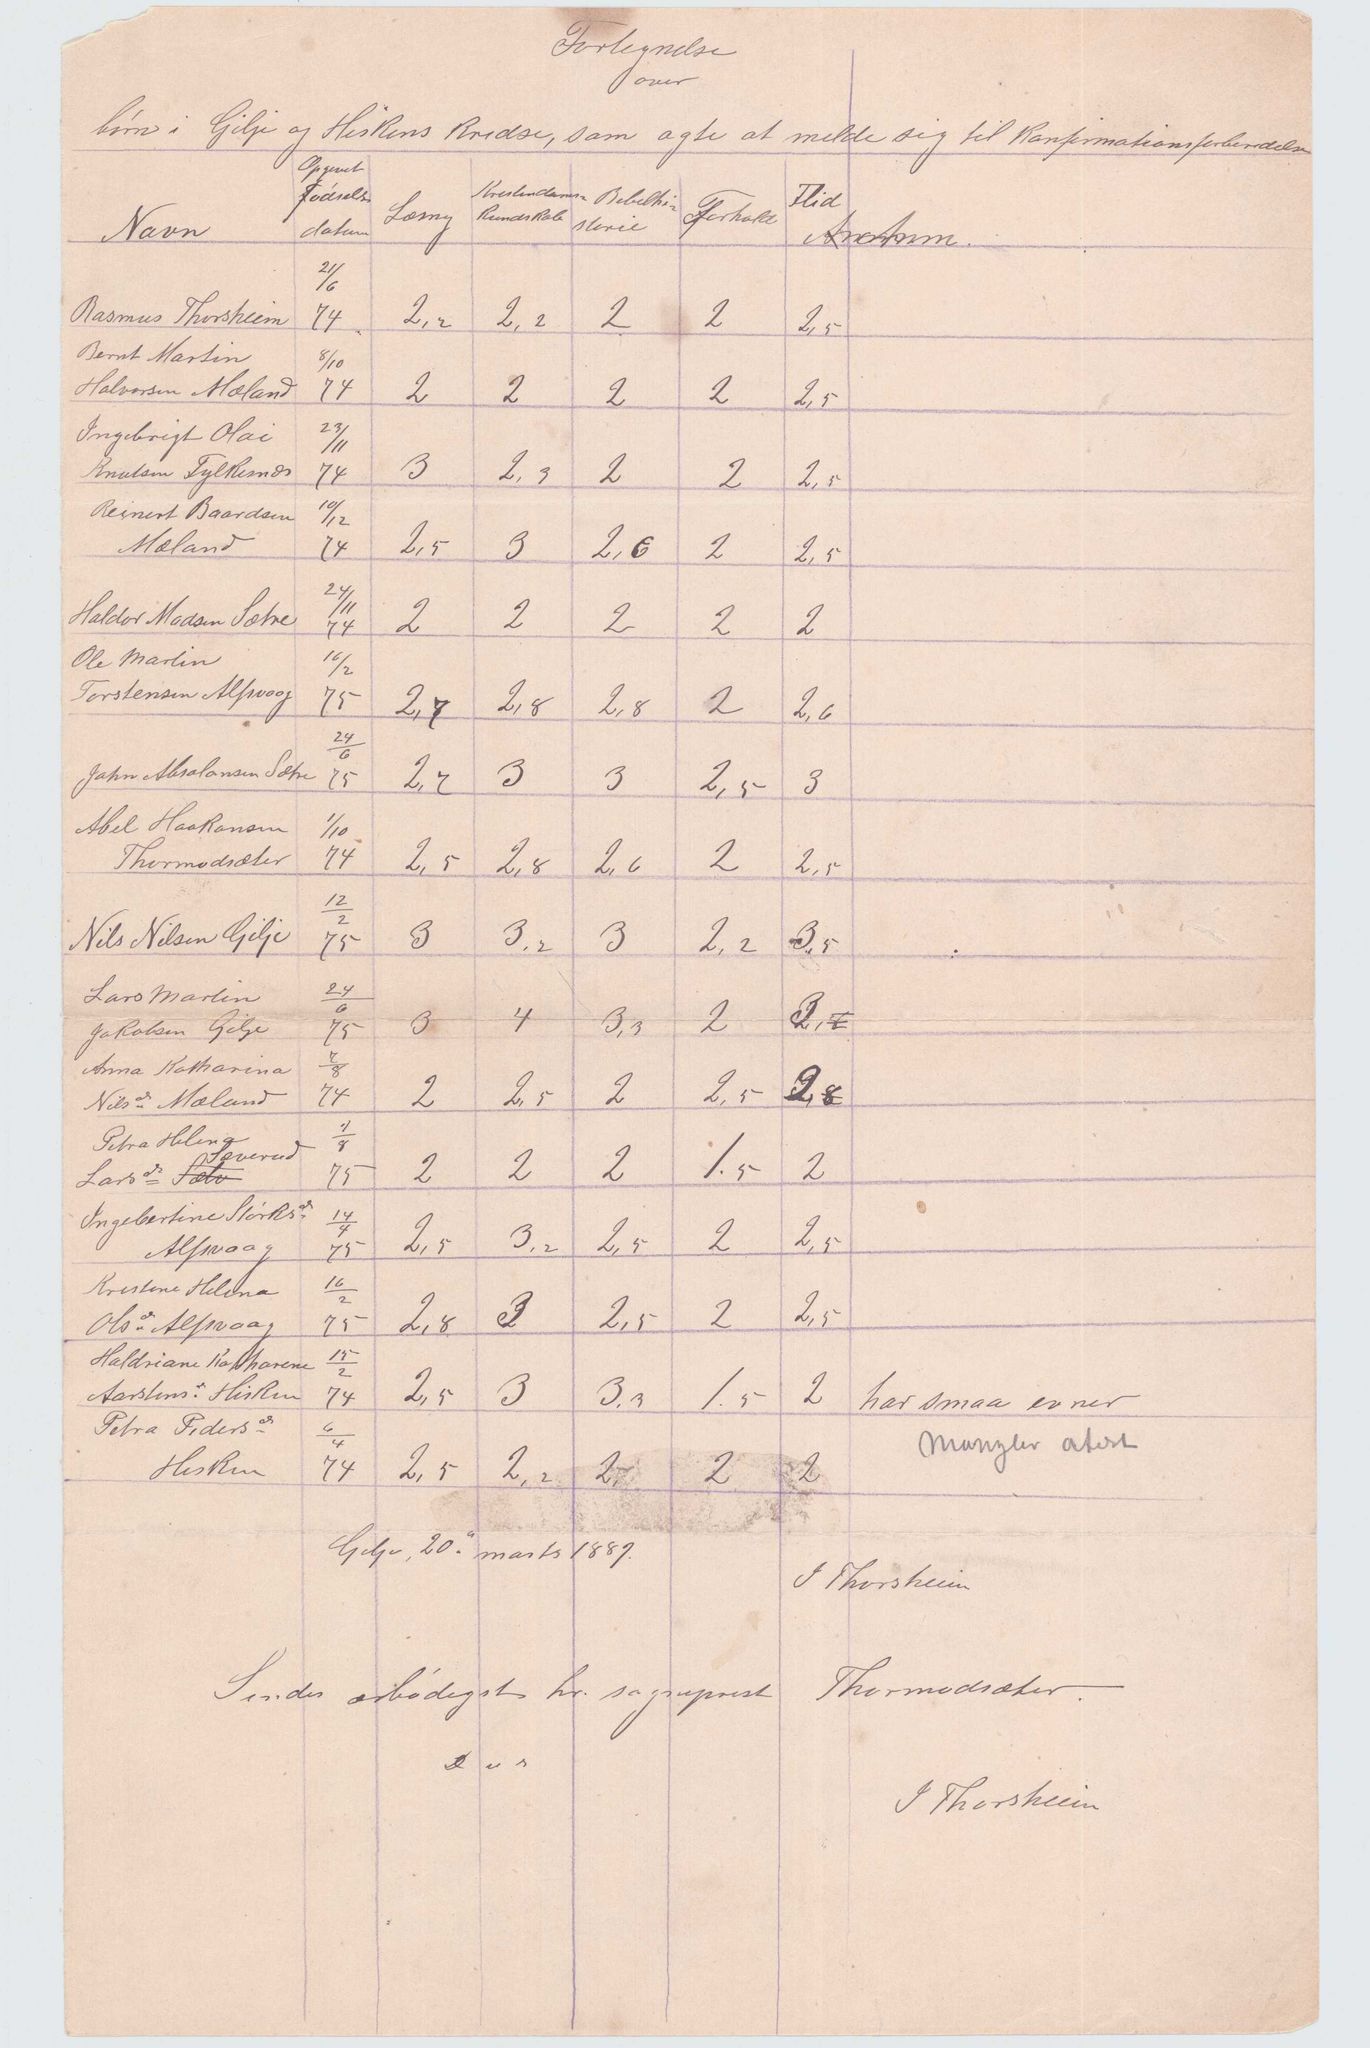 Fortegnelse
over
børn i Gilje og Hiskens Kredse, som agte at melde sig til Konfirmationsforberedelse
Navn Opgivet Fødselsdatum Læsning Kristendomskundskab Bibelhistorie Forhold Flid Anm.
Rasmus Thorsheim 21/6 74 2,2 2,2 2 2 2,5
Bernt Martin 8/10
Halvorsen Mæland 74 2 2 2 2 2,5
Ingebrigt Olai 23/11
Knutsen Fylkesnes 74 3 2,3 2 2 2,5
Reinert Baardsen 10/12
Mæland 74 2,5 3 2,6 2 2,5
Haldor Madsen Sætre 24/11 74 2 2 2 2 2
Ole Martin 16/2
Torstensen Alfsvaag 75 2,7 2,8 2,8 2 2,6
John Absalonsen Sætre 24/6 75 2,7 3 3 2,5 3
Abel Haakonsen 1/10
Thormodsæter 74 2,5 2,8 2,6 2 2,5
Nils Nilsen Gilje 12/2 75 3 3,2 3 2,2 3,5
Lars Martin 24/6
Jakobsen Gilje 75 3 4 3,3 2
Anna Katharina 7/8
Nilsdr Mæland 74 2 2,5 2 2,5 2,8
Petra Helina 7/8
Larsdr Sætr Sæverud 75 2 2 2 1.5 2
Ingebertine Størksdr 14/4
Alfsvaag 75 2,5 3,2 2,5 2 2,5
Kristine Helena 16/2
Olsdr Alfsvaag 75 2,8 3 2,5 2 2,5
Haldriane Katharene 15/2
Aarstensdr Hisken 74 2,5 3 3,3 1.5 2 har smaa evner
Petra Pedersdr 6/4 Mangler attest
Hisken 74 2,5 2,2 2 2 2
Gilje, 20de marts 1889.
I Thorsheim
Sendes ærbødigst hr. sogneprest Thormodsæter.
D u s
I Thorsheim